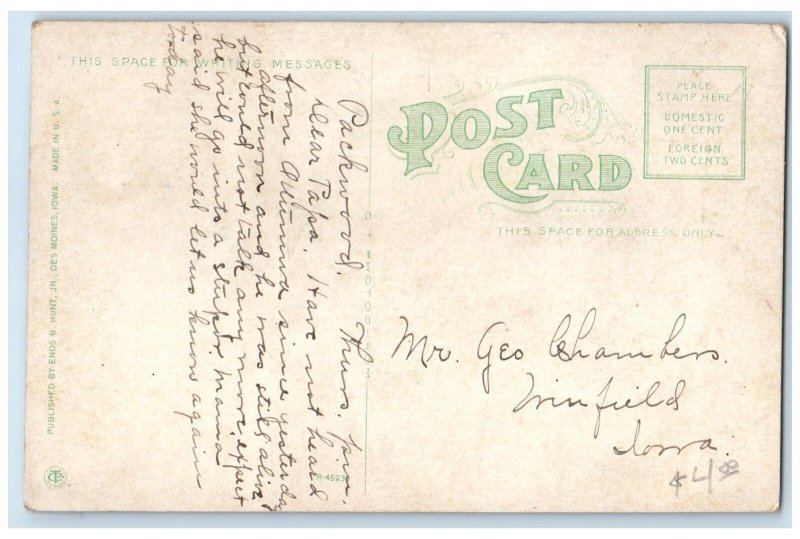 THIS SPACE FOR WRITING MESSAGES
POST CARD
PLACE
STAMP HERE
DOMESTIC
ONE CENT
FOREIGN
TWO CENTS
THIS SPACE FOR ADDRESS ONLY
Packwood. Thurs. p.m.
Dear Papa. Have not heard
from Ottumwa since yesterday
afternoon and he was still alive
but could not talk any more, expect
he will go into a stupor mama
said she would let us know again
today
Mr. Geo Chambers.
Winfield
Iowa.
$4.00
PUBLISHED BY ENOS B. HUNT, JR., DES MOINES, IOWA. MADE IN U. S. A.